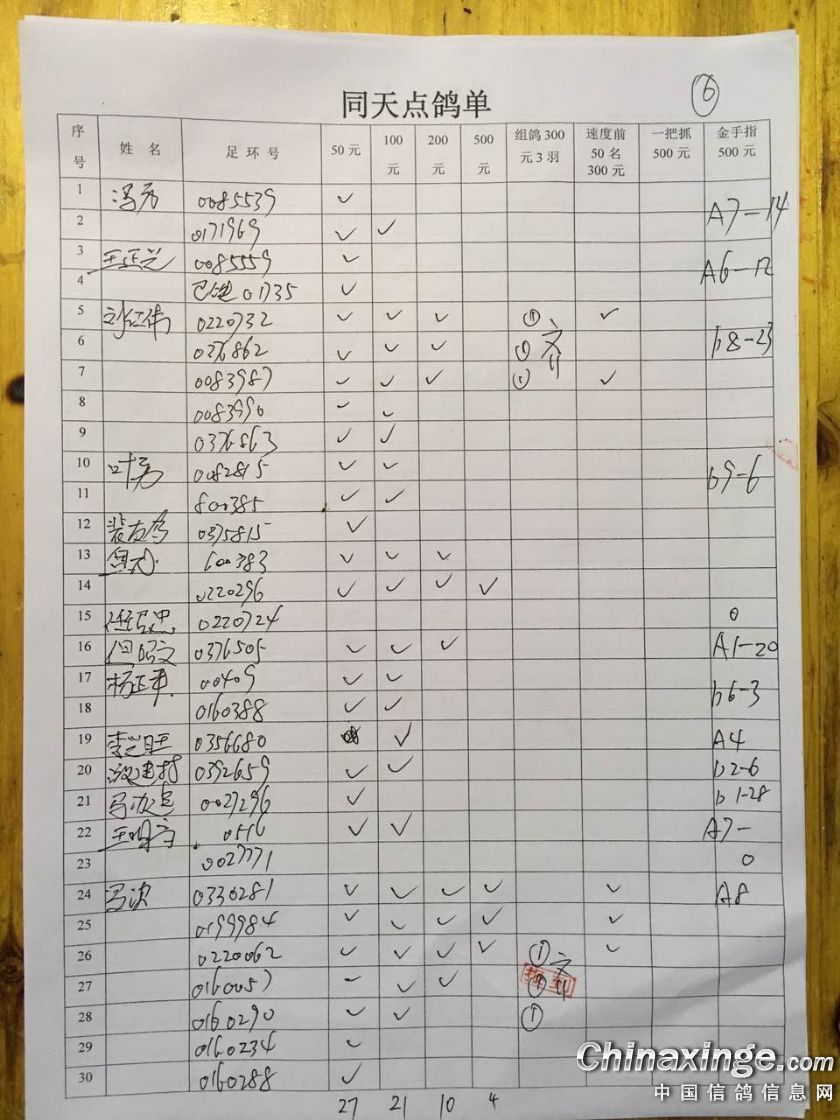 同天点鸽单 ⑥
序号 姓名 足环号 50元 100元 200元 500元 组鸽300元3羽 速度前50名300元 一把抓500元 金手指500元
1 冯 0085539 ✓
2 0171969 ✓ ✓ A7-14
3 王正兴 0085559 ✓
4 01735 ✓ A6-12
5 刘红伟 0220732 ✓ ✓ ✓ ① ✓
6 0376862 ✓ ✓ ✓ ① b8-23
7 0083987 ✓ ✓ ✓ ① ✓
8 0083990 ✓ ✓
9 0376863 ✓ ✓
10 叶 0082815 ✓ ✓
11 800385 ✓ ✓ b9-6
12 0375815 ✓
13 600383 ✓ ✓ ✓
14 0220296 ✓ ✓ ✓ ✓
15 0220724 0
16 0376505 ✓ ✓ ✓ A1-20
17 杨正 00409 ✓ ✓
18 0160388 ✓ ✓ b6-3
19 李兴旺 0356680 ✓ A4
20 0392659 ✓ ✓ b2-6
21 马 0027296 ✓ b1-28
22 王明 0516 ✓ ✓ A7-
23 0027771 0
24 马 0330281 ✓ ✓ ✓ ✓ ✓ A8
25 0199984 ✓ ✓ ✓ ✓ ✓
26 0220062 ✓ ✓ ✓ ✓ ① ✓
27 0160057 ✓ ✓ ✓ ①
28 0160290 ✓ ✓ ①
29 0160234 ✓
30 0160288 ✓
27 21 10 4
Chinaxinge.com
中国信鸽信息网